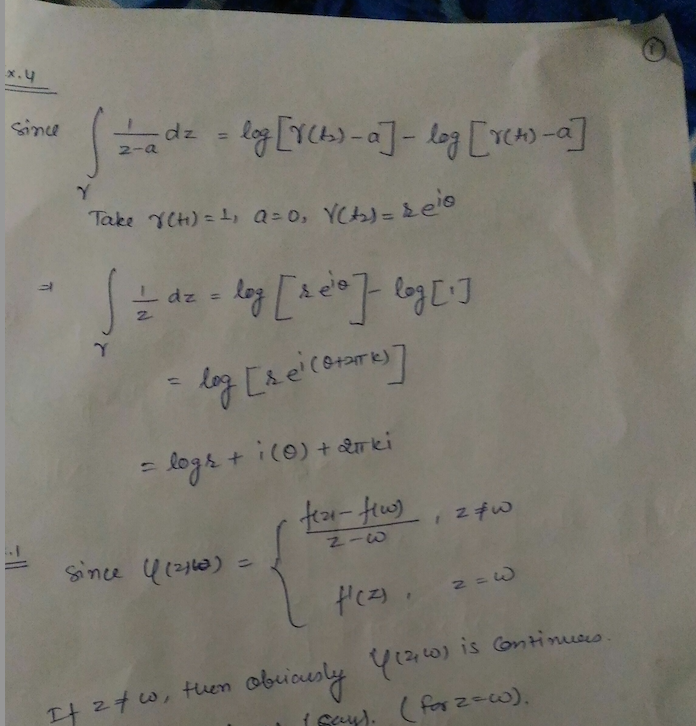 ①
x.4
Since ∫γ 1/(z-a) dz = log[γ(t₂)-a] - log[γ(t₁)-a]
Take γ(t₁)=1, a=0, γ(t₂)=re^{iθ}
⇒ ∫γ 1/z dz = log[re^{iθ}] - log[1]
= log[re^{i(θ+2πk)}]
= log r + i(θ) + 2πki
.1 Since φ(z,w) = { (f(z)-f(w))/(z-w) , z≠w
f'(z) , z=w
If z≠w, then obviously φ(z,w) is continuous.
(say). (for z=w).